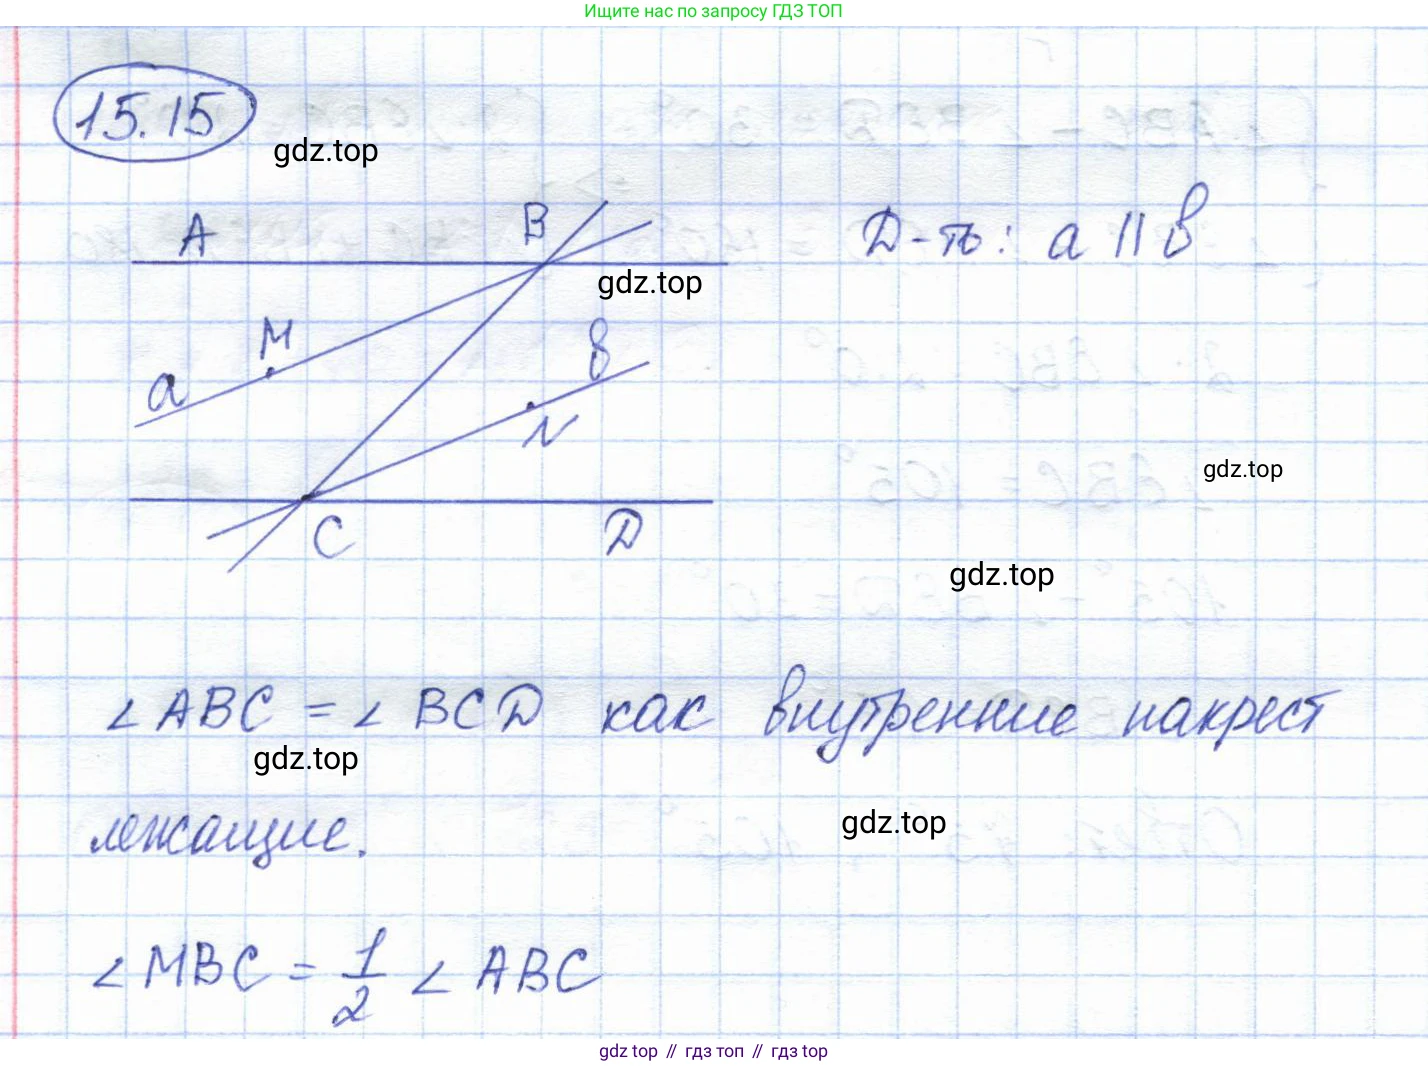 Ищите нас по запросу ГДЗ ТОП
15.15
gdz.top
A
B
Д-ть: a || b
gdz.top
M
b
a
N
gdz.top
C
D
gdz.top
∠ ABC = ∠ BCD как внутренние накрест
gdz.top
лежащие.
gdz.top
∠ MBC = 1/2 ∠ ABC
gdz top // гдз топ // gdz top